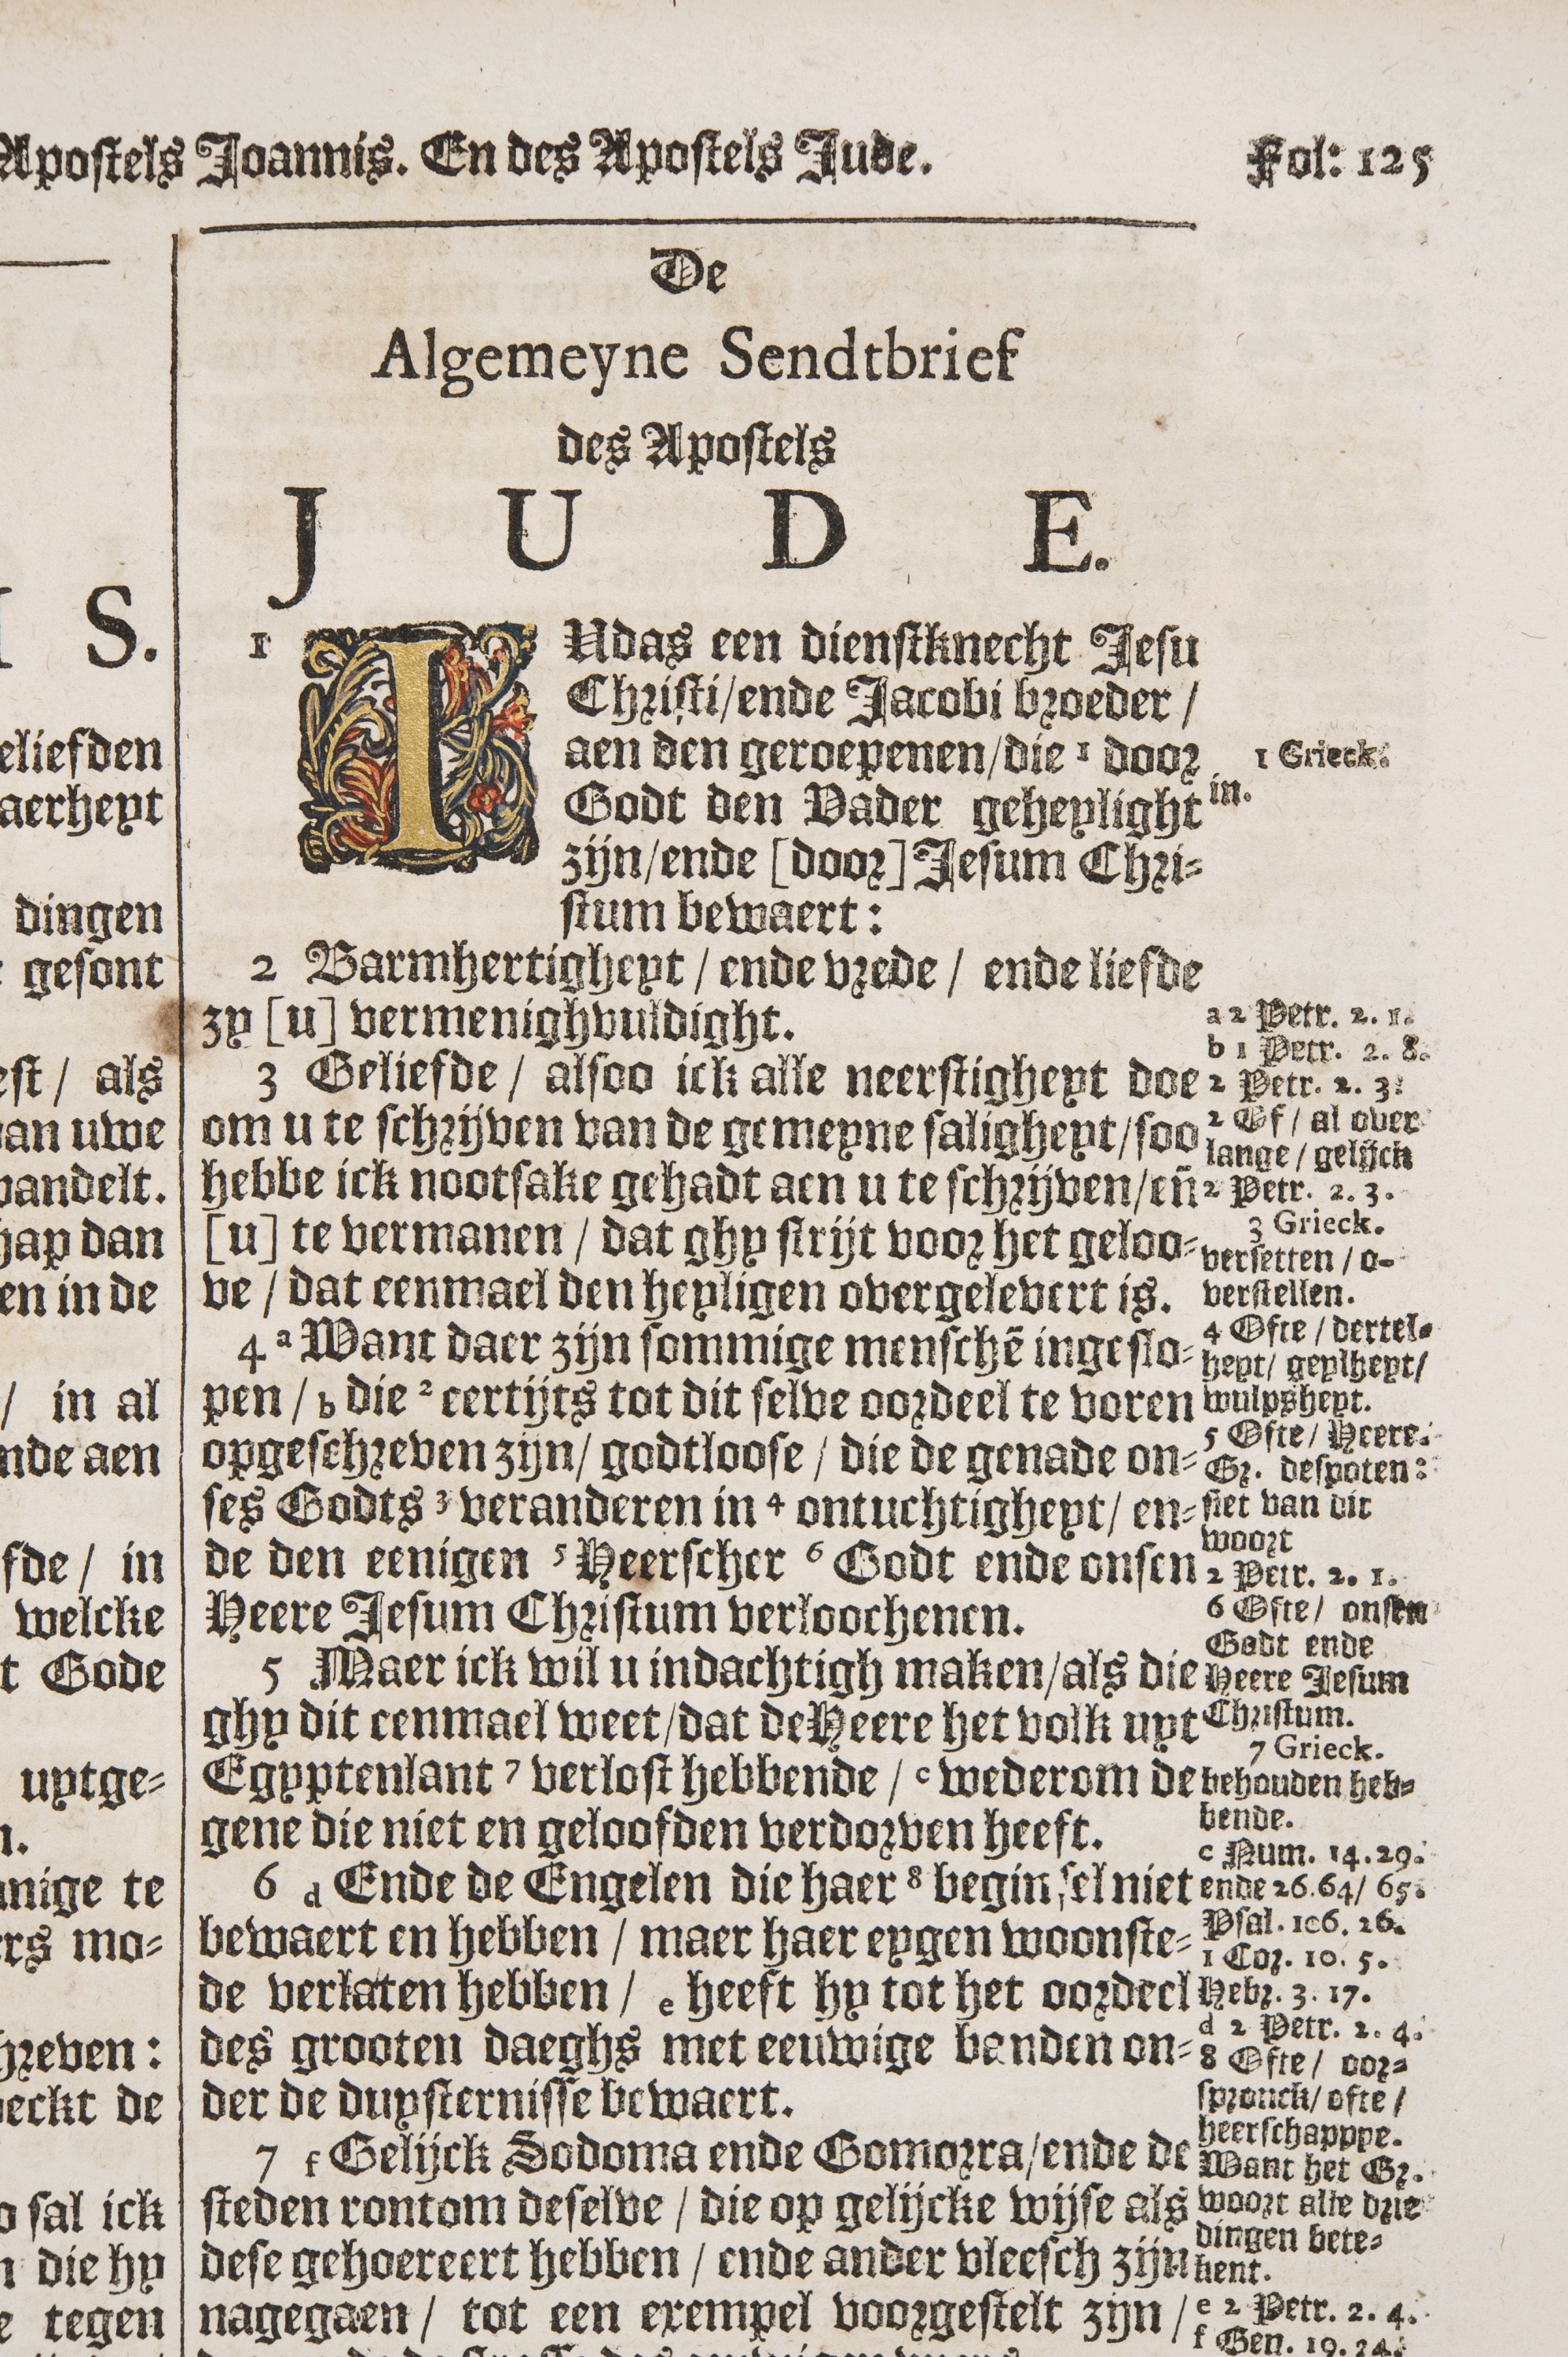 Apostels Joannis. En des Apostels Jude. Fol: 125
S.
eliefden
aerheyt
dingen
gesont
est / als
van uwe
wandelt.
hap dan
en in de
/ in al
nde aen
fde / in
welcke
t Gode
uytge-
n.
nnige te
ers mo-
hreven:
weckt de
o sal ick
n die hy
e tegen
De
Algemeyne Sendtbrief
des Apostels
JUDE.
1 IUdas een dienstknecht Jesu
Christi/ende Jacobi broeder /
aen den geroepenen/die 1 door
Godt den Vader geheylight
zijn/ende [door] Jesum Chri-
stum bewaert:
2 Barmhertigheyt / ende vrede / ende liefde
zy [u] vermenighvuldight.
3 Geliefde / alsoo ick alle neerstigheyt doe
om u te schrijven van de gemeyne saligheyt/soo
hebbe ick nootsake gehadt aen u te schrijven/eñ
[u] te vermanen / dat ghy strijt voor het geloo-
ve / dat eenmael den heyligen overgelevert is.
4 a Want daer zijn sommige menschē ingeslo-
pen / b die 2 eertijts tot dit selve oordeel te voren
opgeschreven zijn/ godtloose / die de genade on-
ses Godts 3 veranderen in 4 ontuchtigheyt/ en-
de den eenigen 5 Heerscher 6 Godt ende onsen
Heere Jesum Christum verloochenen.
5 Maer ick wil u indachtigh maken/als die
ghy dit eenmael weet/dat de Heere het volk uyt
Egyptenlant 7 verlost hebbende / c wederom de
gene die niet en geloofden verdorven heeft.
6 d Ende de Engelen die haer 8 beginsel niet
bewaert en hebben / maer haer eygen woonste-
de verlaten hebben / e heeft hy tot het oordeel
des grooten daeghs met eeuwige banden on-
der de duysternisse bewaert.
7 f Gelijck Sodoma ende Gomorra/ende de
steden rontom deselve / die op gelijcke wijse als
dese gehoereert hebben / ende ander vleesch zijn
nagegaen / tot een exempel voorgestelt zijn /
1 Grieck.
in.
a 2 Petr. 2. 1.
b 1 Petr. 2. 8.
2 Petr. 2. 3.
2 Of / al over
lange / gelijck
2 Petr. 2. 3.
3 Grieck.
versetten / o-
verstellen.
4 Ofte / dertel-
heyt/ geylheyt/
wulpsheyt.
5 Ofte/ Heere.
Gr. despoten:
siet van dit
woort
2 Petr. 2. 1.
6 Ofte/ onsen
Godt ende
Heere Jesum
Christum.
7 Grieck.
behouden heb-
bende.
c Num. 14. 29.
ende 26.64/ 65.
Psal. 106. 26.
1 Cor. 10. 5.
Hebr. 3. 17.
d 2 Petr. 2. 4.
8 Ofte/ oor-
spronck/ ofte /
heerschappye.
Want het Gr.
woort alle drie
dingen bete-
kent.
e 2 Petr. 2. 4.
f Gen. 19. 24.